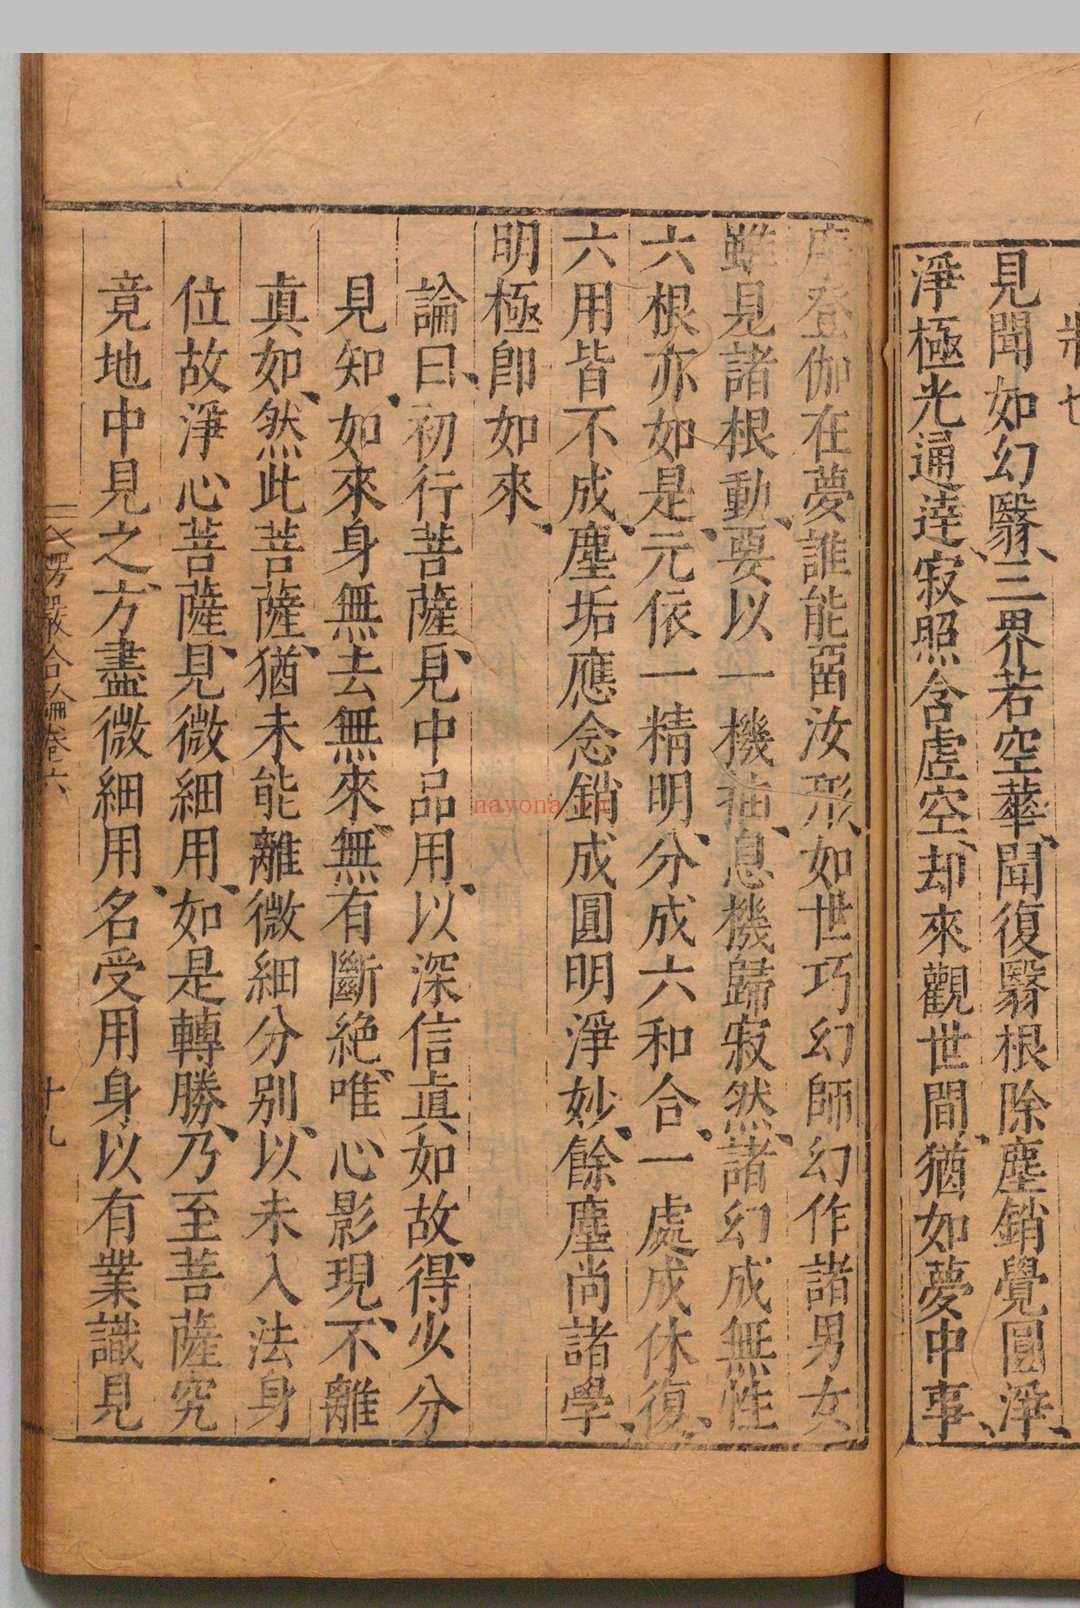 見聞如幻翳、三界若空華、聞復翳根除塵銷覺圓淨、
淨極光通達、寂照含虛空、却來觀世間、猶如夢中事、
摩登伽在夢誰能畱汝形、如世巧幻師幻作諸男女
雖見諸根動、要以一機抽、息機歸寂然、諸幻成無性
六根亦如是、元依一精明、分成六和合、一處成休復、
六用皆不成、塵垢應念銷成圓明淨妙、餘塵尚諸學、
明極卽如來、
論曰、初行菩薩、見中品用、以深信眞如故、得少分
見知、如來身無去無來、無有斷絕、唯心影現、不離
眞如、然此菩薩、猶未能離微細分别、以未入法身
位故淨心菩薩、見微細用、如是轉勝、乃至菩薩究
竟地中見之、方盡微細用、名受用身以有業識見
楞嚴合論卷六
十九
nayona.cn